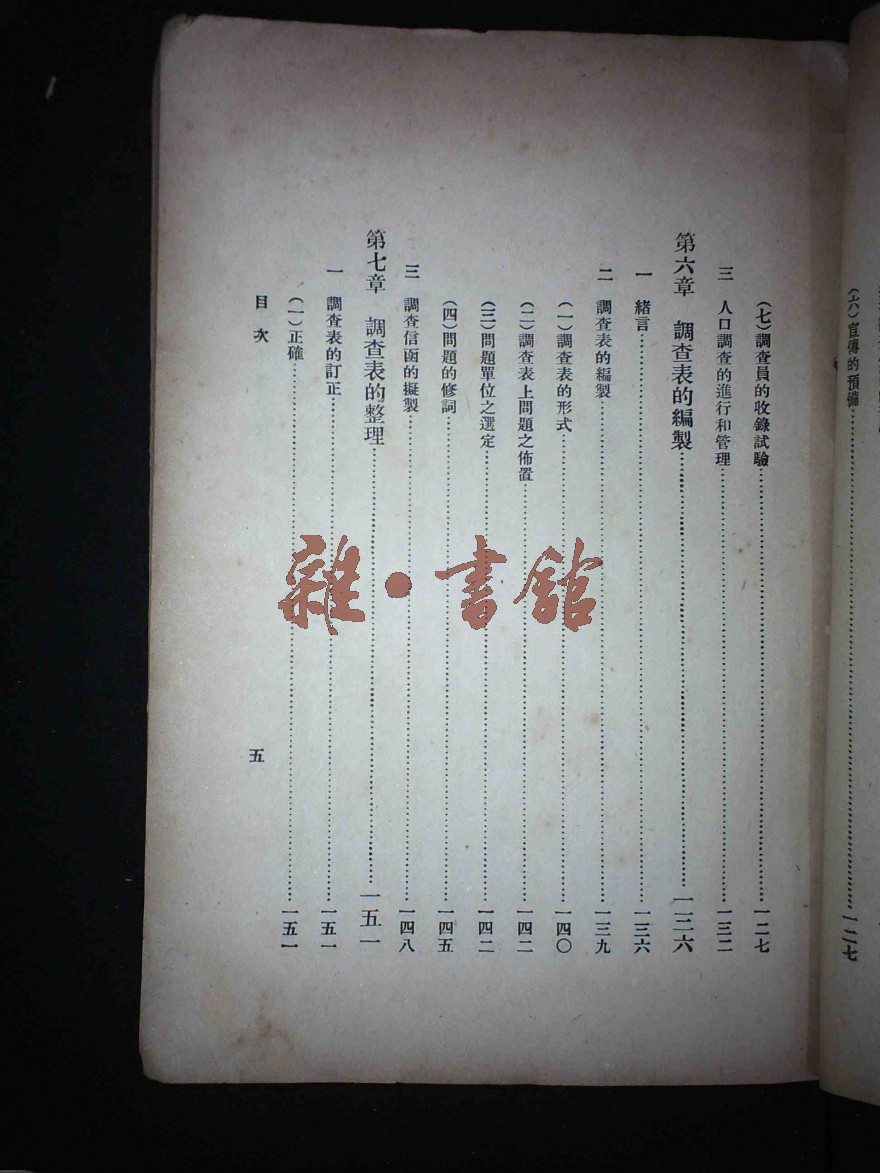 （六）宣傳的預備…………一二七
（七）調查員的收錄試驗…………一二七
三　人口調查的進行和管理…………一三二
第六章　調查表的編製…………一三六
一　緒言…………一三六
二　調查表的編製…………一三九
（一）調查表的形式…………一四〇
（二）調查表上問題之佈置…………一四二
（三）問題單位之選定…………一四二
（四）問題的修詞…………一四五
三　調查信函的擬製…………一四八
第七章　調查表的整理…………一五一
一　調查表的訂正…………一五一
（一）正確…………一五一
目次
五
雜•書館